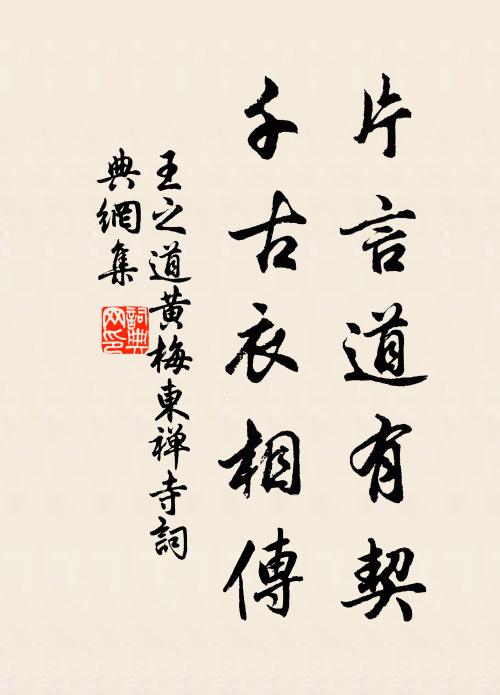 片言道有契
千古衣相傳
王之道黄梅東禅寺詞
典網集
詞典
网印